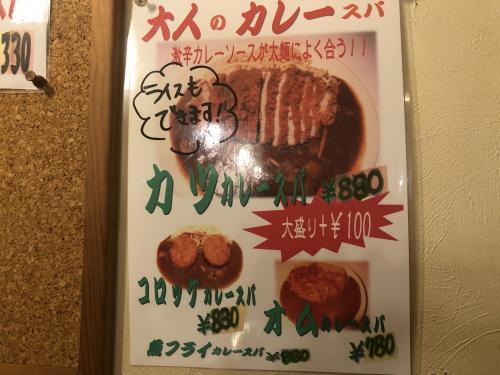 330
大人のカレースパ
激辛カレーソースが太麺によく合う!!
ライスも
できます!
カツカレースパ ¥880
大盛り+¥100
コロッケカレースパ
¥830
オムカレースパ
¥780
フライカレースパ